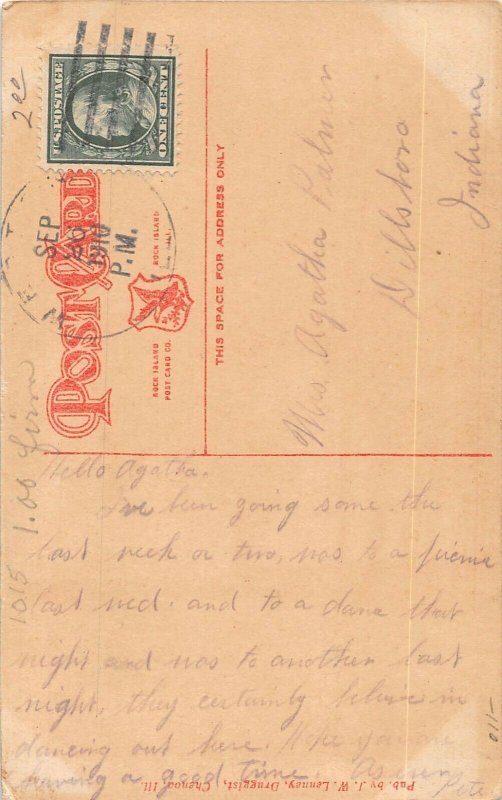 U.S. POSTAGE
ONE CENT
2 ec
SEP
1910
P.M.
POST CARD
ROCK ISLAND
POST CARD CO.
ROCK ISLAND
ILL.
THIS SPACE FOR ADDRESS ONLY
Miss Agatha Palmer
Dillsboro
Indiana
1015 1.00 firm
Hello Agatha.
I've been going some the
last week or two, was to a picnic
last wed. and to a dance that
night and was to another last
night, they certainly believe in
dancing out here. Hope you are
having a good time. As ever
Pete
Pub. by J. W. Lenney, Druggist, Chenoa, Ill.
011-